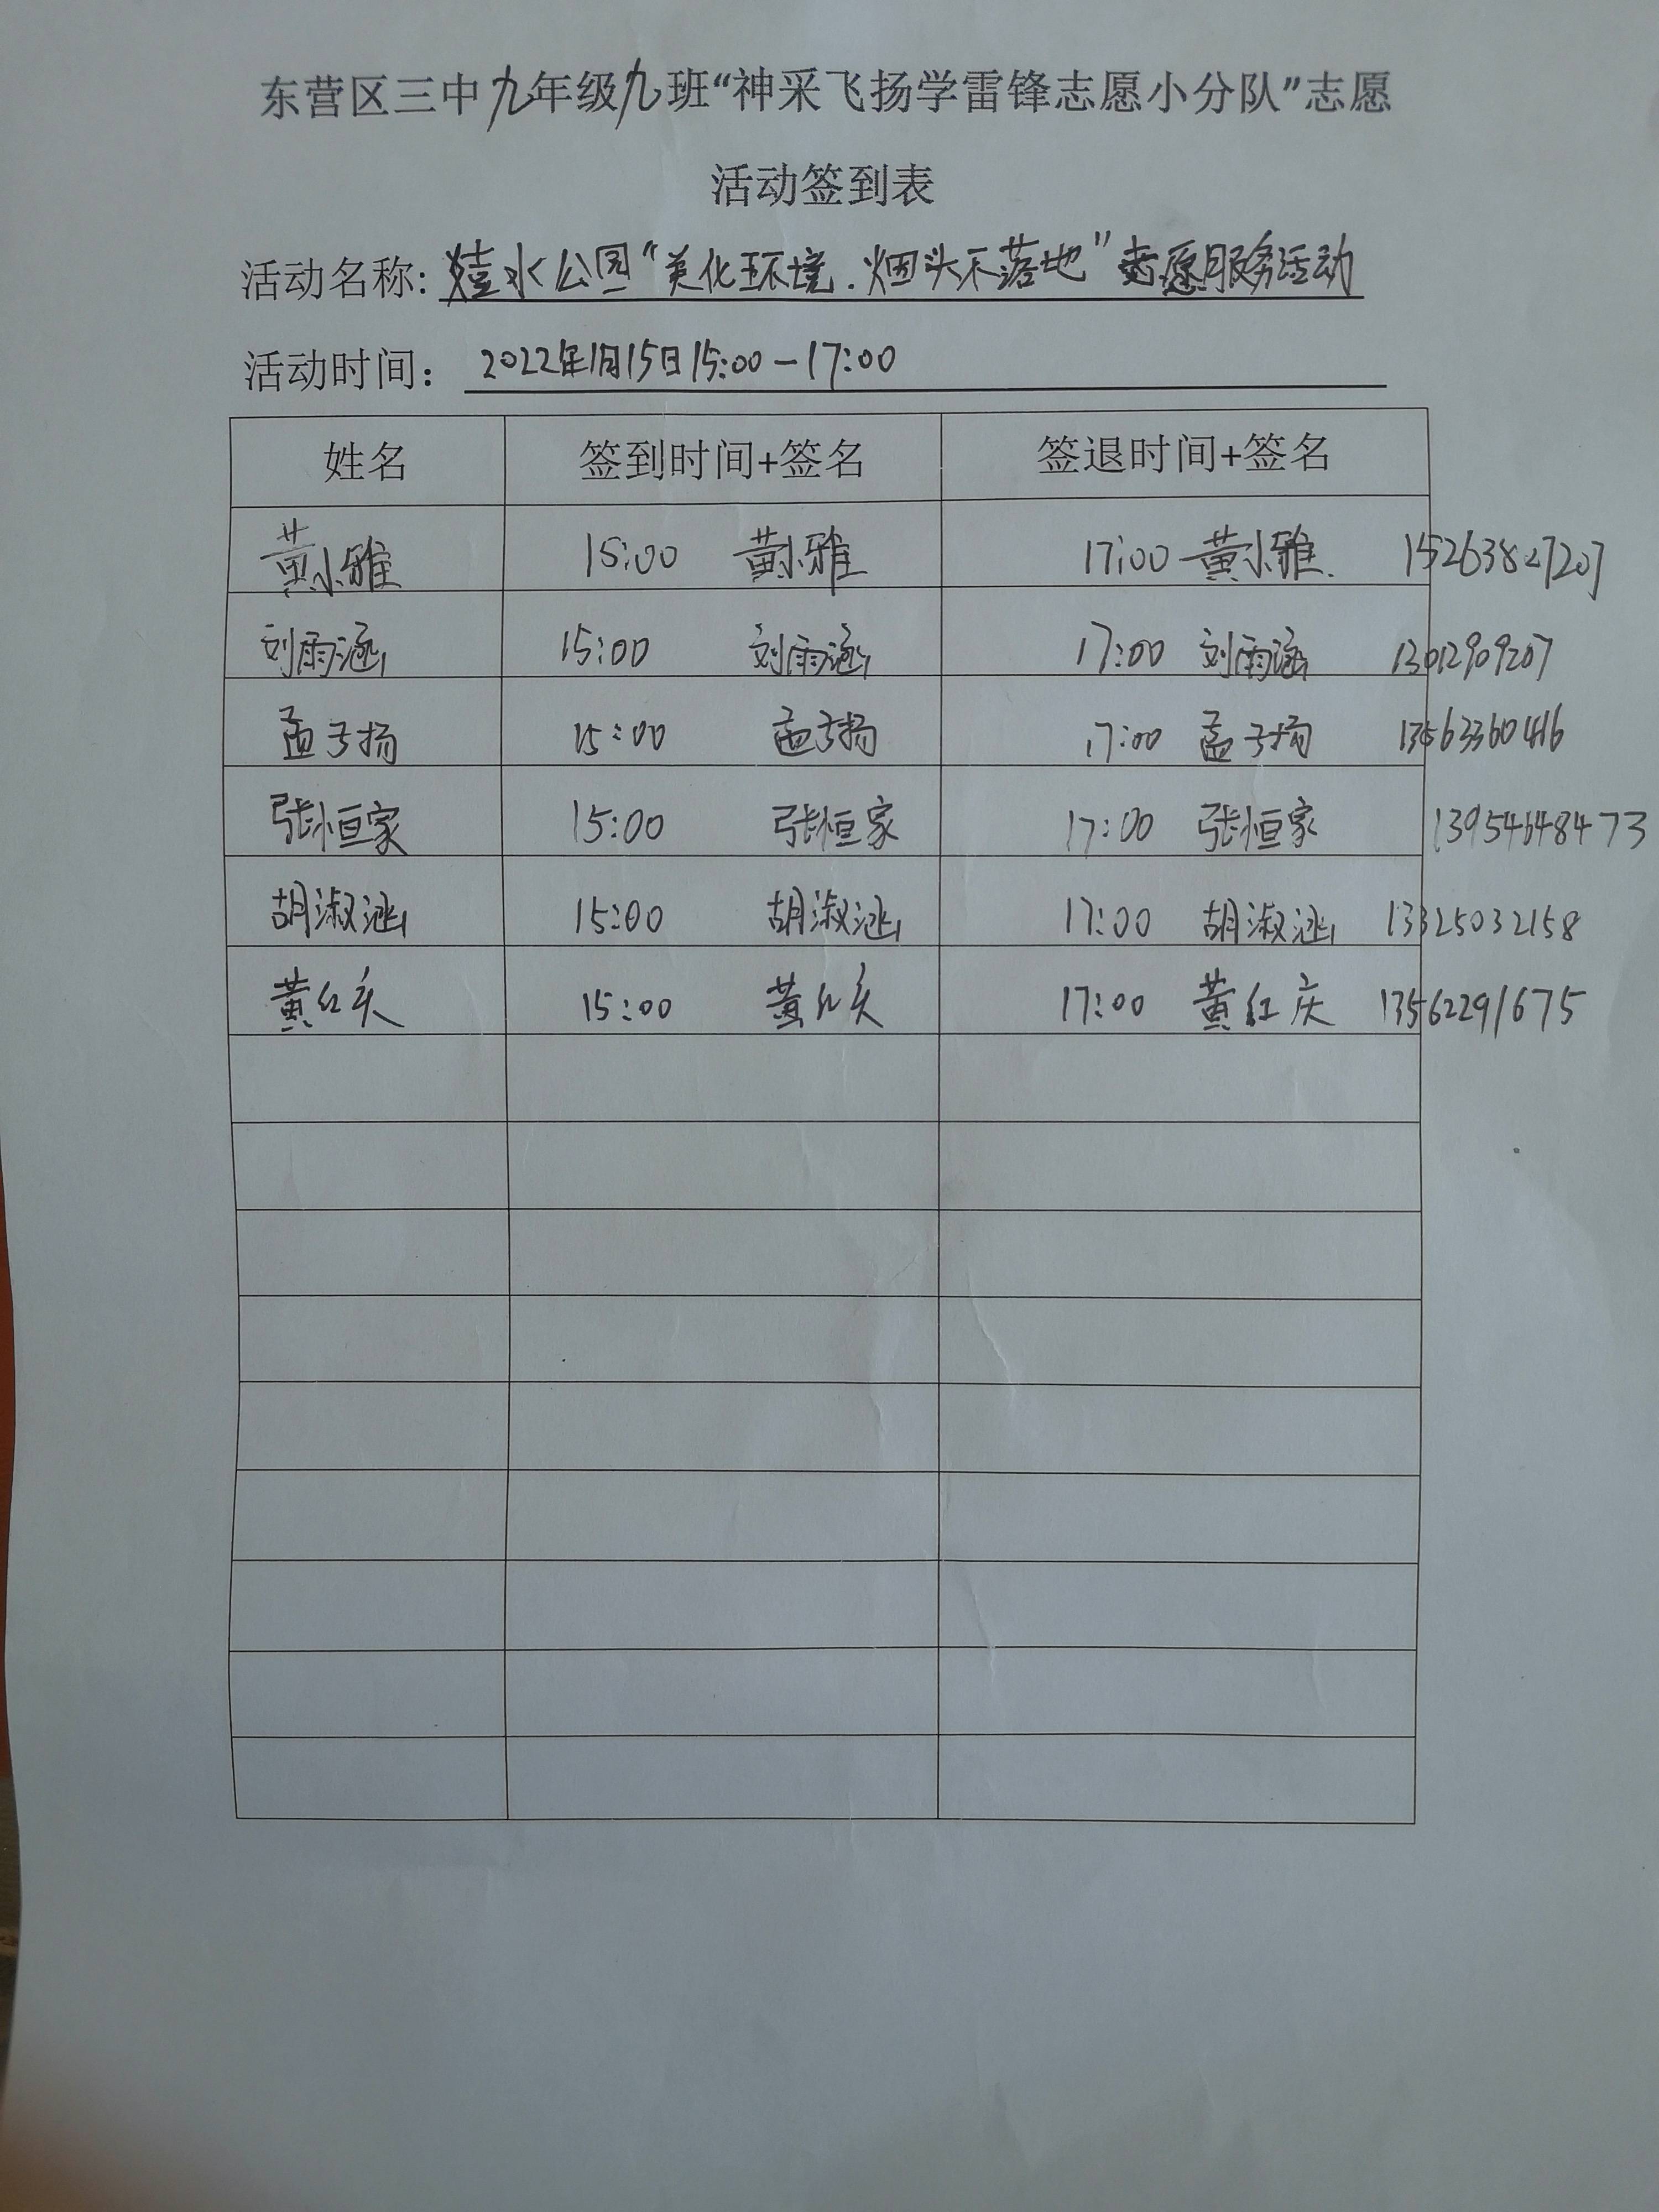 东营区三中九年级九班“神采飞扬学雷锋志愿小分队”志愿
活动签到表
活动名称: 水公园“美化环境.烟头不落地”志愿服务活动
活动时间: 2022年1月15日15:00-17:00
姓名 签到时间+签名 签退时间+签名
黄小雅 15:00 黄小雅 17:00 黄小雅. 15263827207
刘雨涵 15:00 刘雨涵 17:00 刘雨涵 13012909207
孟子扬 15:00 孟子扬 17:00 孟子扬 13563360416
张恒家 15:00 张恒家 17:00 张恒家 13954648473
胡淑涵 15:00 胡淑涵 17:00 胡淑涵 13325032158
黄红庆 15:00 黄红庆 17:00 黄红庆 13562291675